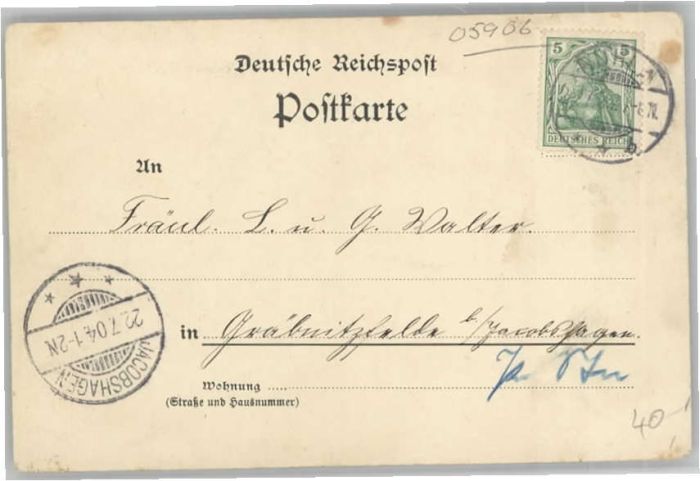 05906
Deutsche Reichspost
Postkarte
5 5
DEUTSCHES REICH
An
Fräul. L. u. G. Walter.
in Gräbnitzfelde b/Jacobshagen.
Wohnung
(Straße und Hausnummer)
JACOBSHAGEN
22.7.04.1-2N
40